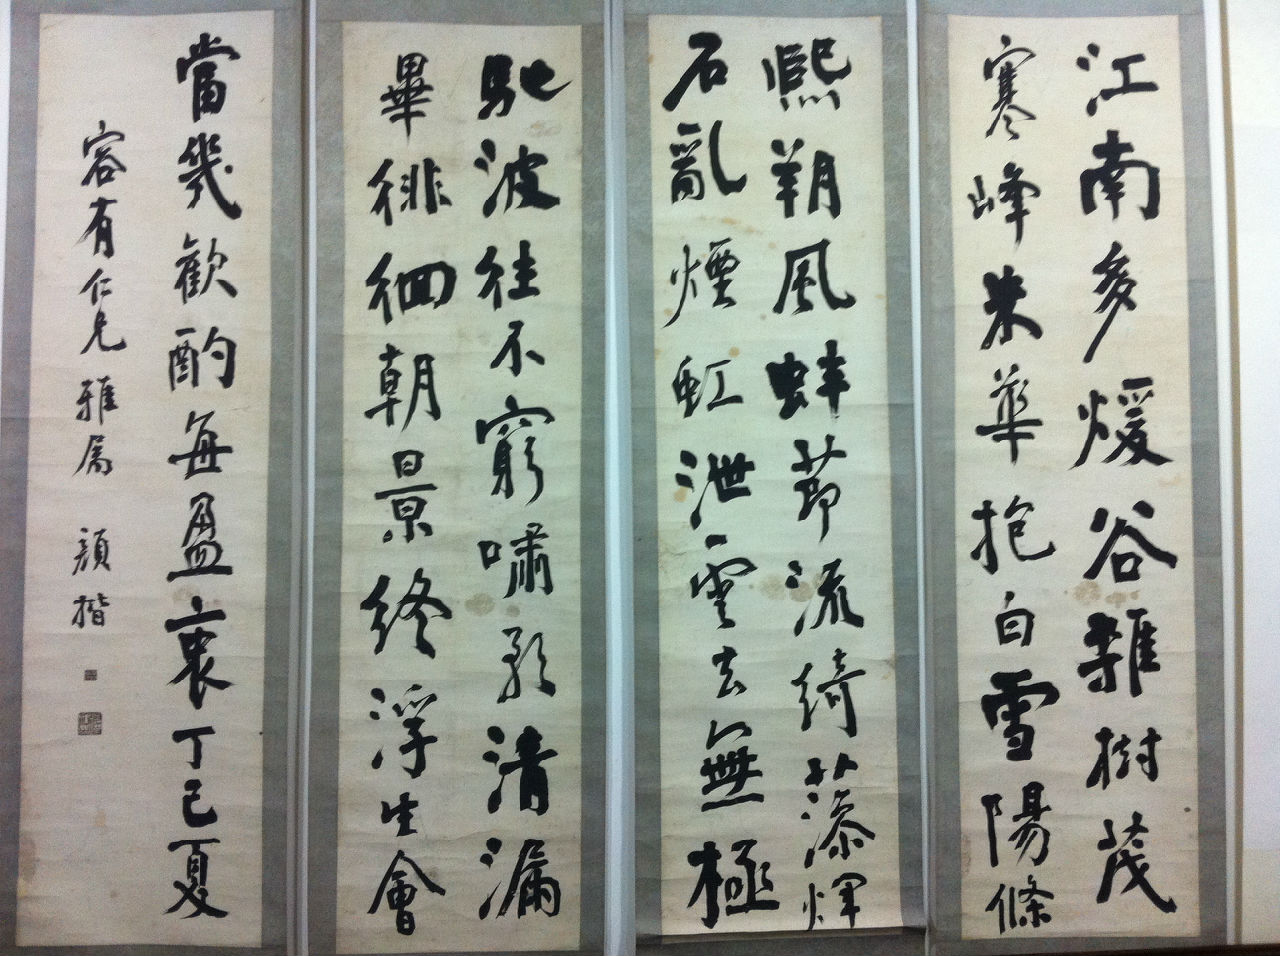 江南多煖谷雜樹茂
寒峰朱華抱白雪陽條
熙朔風蚌節流綺藻輝
石亂煙虹泄雲去無極
馳波往不窮嘯歌清漏
畢徘徊朝景終浮生會
當幾歡酌每盈衷丁巳夏
容有仁兄雅属 顏楷